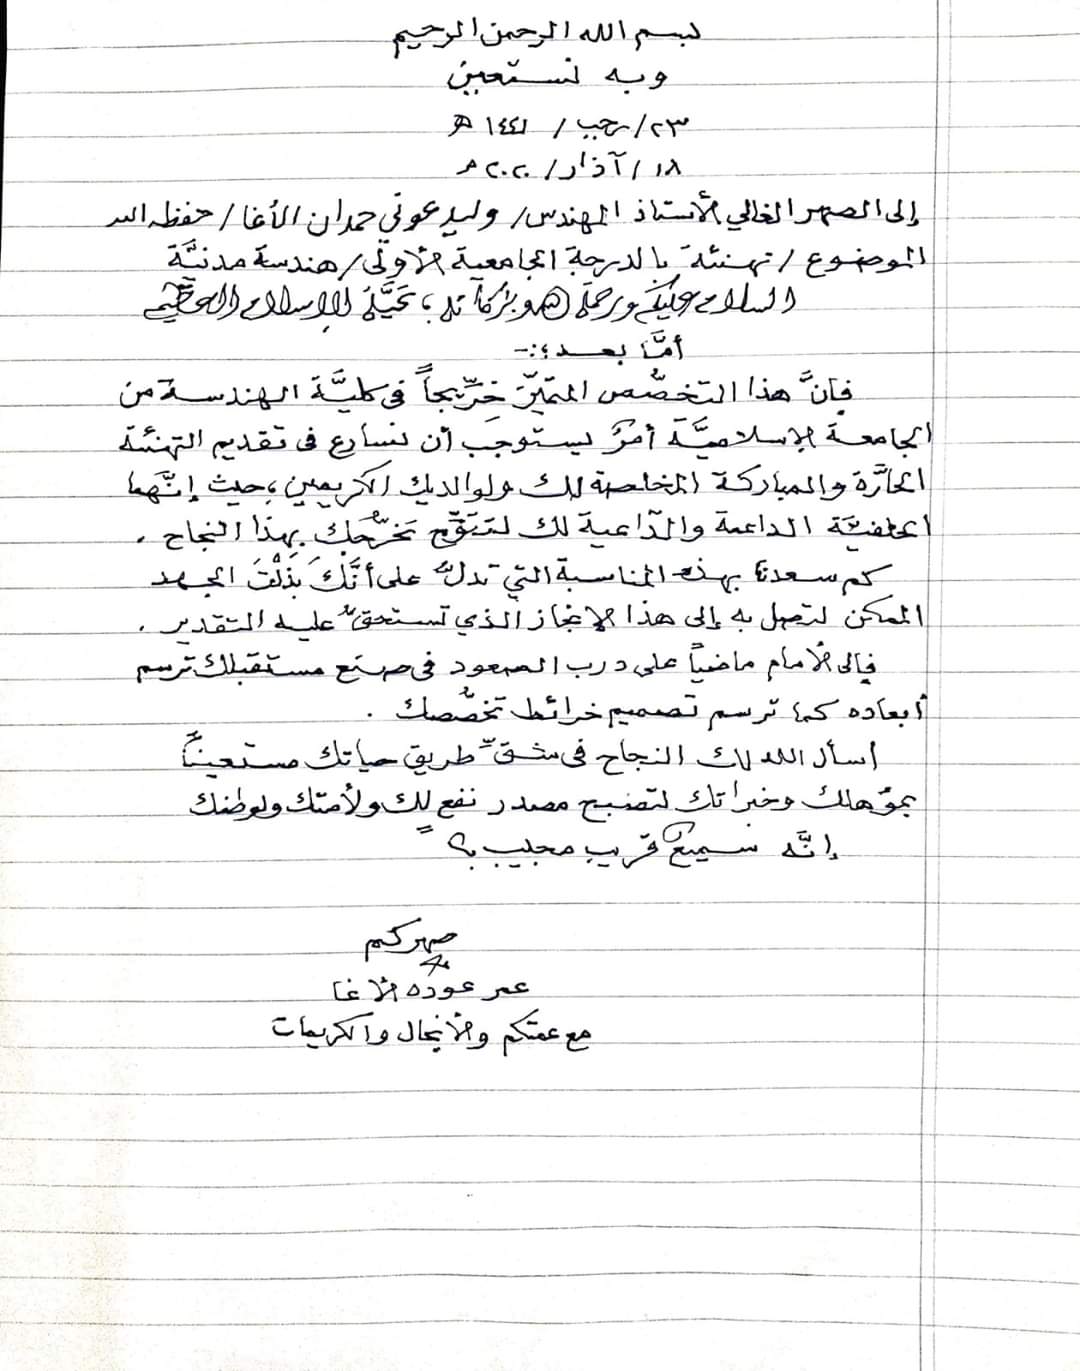 بسم الله الرحمن الرحيم
وبه نستعين
٢٣/رجب/ ١٤٤١ هـ
١٨/آذار/ ٢٠٢٠م
إلى الصهر الغالي الأستاذ المهندس/ وليد عوني حمدان الأغا/ حفظه الله
الموضوع/ تهنئة بالدرجة الجامعية الأولى/ هندسة مدنيَّة
السلام عليكم ورحمة الله وبركاته، تحيَّة الإسلام العظيم
أمَّا بعد؛:-
فإنَّ هذا التخصُّص المتميّز خرِّيجاً في كليَّة الهندسة من
الجامعة الإسلاميَّة أمرٌ يستوجب أن نسارع في تقديم التهنئة
الحارَّة والمباركة المخلصة لك ولوالديك الكريمين، حيث إنَّهما
الخلفيَّة الداعمة والدّاعية لك لتتوِّج تخرُّجك بهذا النجاح.
كم سعدنا بهذه المناسبة التي تدلُّ على أنَّكَ بَذَلْتَ الجهد
الممكن لتصل به إلى هذا الإنجاز الذي تستحقُّ عليه التقدير.
فإلى الأمام ماضياً على درب الصعود في صنع مستقبلك ترسم
أبعاده كما ترسم تصميم خرائط تخصُّصك.
أسأل الله لك النجاح في شقِّ طريق حياتك مستعيناً
بمؤهلك وخبراتك لتصبح مصدر نفع لك ولأمتك ولوطنك
إنَّه سميعٌ قريب مجيب؟
صهركم
عمر عوده الأغا
مع عمتكم والأنجال والكريمات